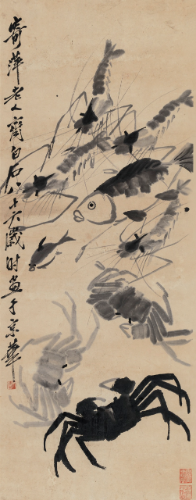 寄萍老人齊白石八十六歲時畫于京華